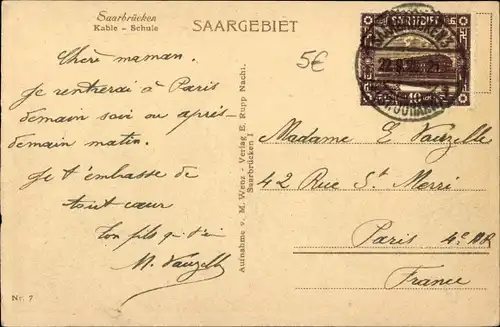 Saarbrücken
Kable - Schule
SAARGEBIET
5€
SAARGEBIET
Chère maman.
Je rentrerai à Paris
demain soir ou après-
demain matin.
Je t'embrasse de
tout cœur
ton fils qui t'
M. Vauzelle
Nr. 7
Aufnahme v. M. Wenz - Verlag E. Rupp Nachf.
Saarbrücken 1
Madame E Vauzelle
42 Rue St Merri
Paris 4e AR
France